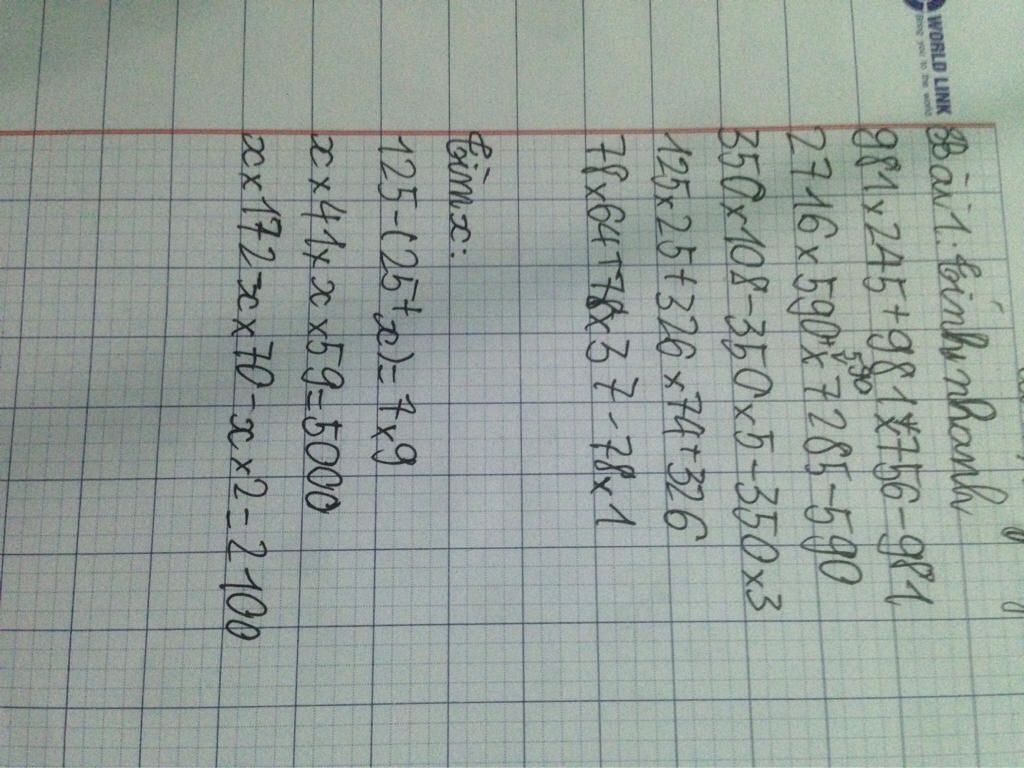 WORLD LINK
Bài 1: tính nhanh
981 x 245 + 981 x 756 - 981
2716 x 590 + 590 x 7285 - 590
350 x 108 - 350 x 5 - 350 x 3
125 x 25 + 326 x 74 + 326
78 x 64 + 78 x 37 - 78 x 1
tìm x:
125 - (25 + x) = 7 x 9
x x 41 x x x 59 = 5000
x x 172 - x x 70 - x x 2 = 2100